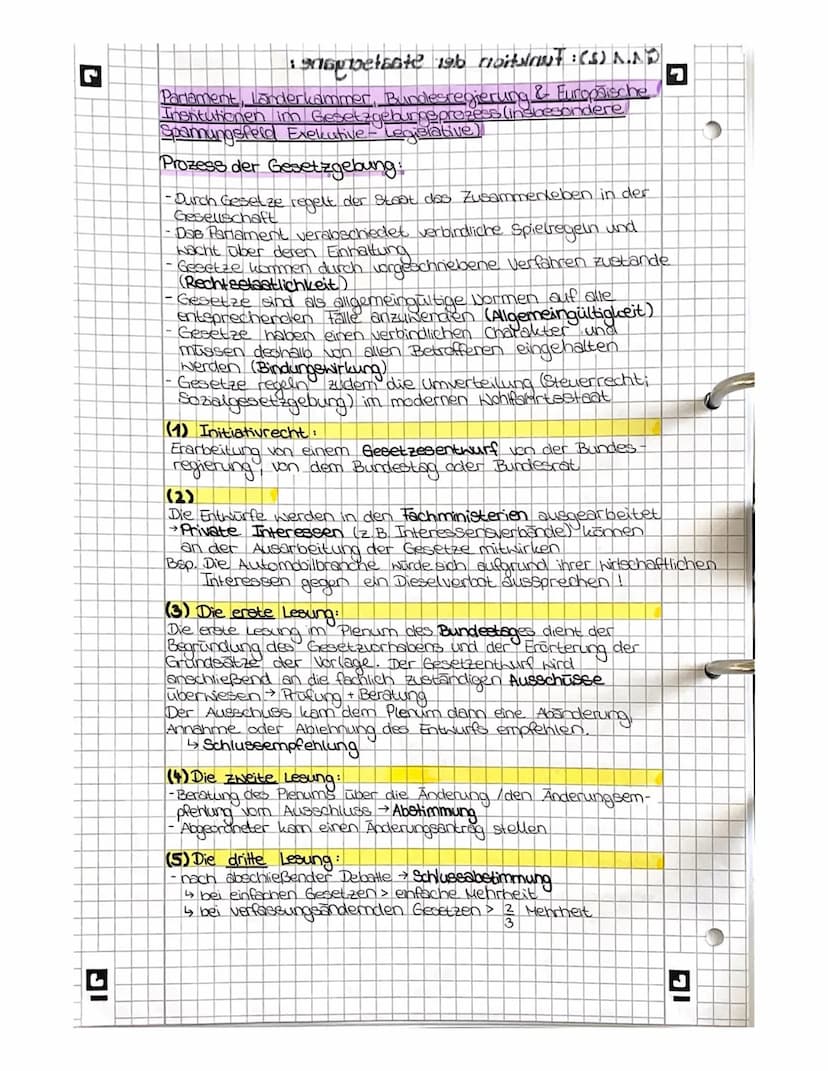 Parlament, Länderkammer, Bundesregierung & Europäische
Institutionen im Gesetzgebungsprozess (insbesondere
Spannungsfeld Exekutive - Legislative)
Prozess der Gesetzgebung:
- Durch Gesetze regelt der Staat das Zusammenleben in der
Gesellschaft
- Das Parlament verabschiedet verbindliche Spielregeln und
wacht über deren Einhaltung
- Gesetze kommen durch vorgeschriebene Verfahren zustande
(Rechtsstaatlichkeit)
- Gesetze sind als allgemeingültige Normen auf alle
entsprechenden Fälle anzuwenden (Allgemeingültigkeit)
- Gesetze haben einen verbindlichen Charakter und
müssen deshalb von allen Betroffenen eingehalten
werden (Bindungswirkung)
- Gesetze regeln zudem die Umverteilung (Steuerrecht;
Sozialgesetzgebung) im modernen Wohlfahrtsstaat
(1) Initiativrecht:
Erarbeitung von einem Gesetzesentwurf von der Bundes-
regierung, von dem Bundestag oder Bundesrat
(2)
Die Entwürfe werden in den Fachministerien ausgearbeitet
→ Private Interessen (z.B. Interessensverbände) können
an der Ausarbeitung der Gesetze mitwirken
Bsp. Die Automobilbranche würde sich aufgrund ihrer wirtschaftlichen
Interessen gegen ein Dieselverbot aussprechen!
(3) Die erste Lesung:
Die erste Lesung im Plenum des Bundestages dient der
Begründung des Gesetzvorhabens und der Erörterung der
Grundsätze der Vorlage. Der Gesetzentwurf wird
anschließend an die fachlich zuständigen Ausschüsse
überwiesen → Prüfung + Beratung
Der Ausschuss kann dem Plenum dann eine Abänderung,
Annahme oder Ablehnung des Entwurfs empfehlen.
↳ Schlussempfehlung
(4) Die zweite Lesung:
- Beratung des Plenums über die Änderung / den Änderungsem-
pfehlung vom Ausschluss → Abstimmung
- Abgeordneter kann einen Änderungsantrag stellen
(5) Die dritte Lesung:
- nach abschließender Debatte → Schlussabstimmung
↳ bei einfachen Gesetzen > einfache Mehrheit
↳ bei verfassungsändernden Gesetzen > 2/3 Mehrheit